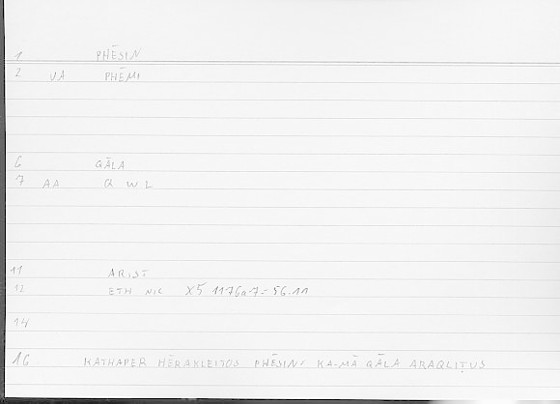 1 PHĒSIN
2 UA PHĒMI
6 QĀLA
7 AA Q W L
11 ARIST
12 ETH NIC X5 1176a7 = 56.11
14
16 KATHAPER HĒRAKLEITOS PHĒSIN: KA-MĀ QĀLA ARAQLIṬUS